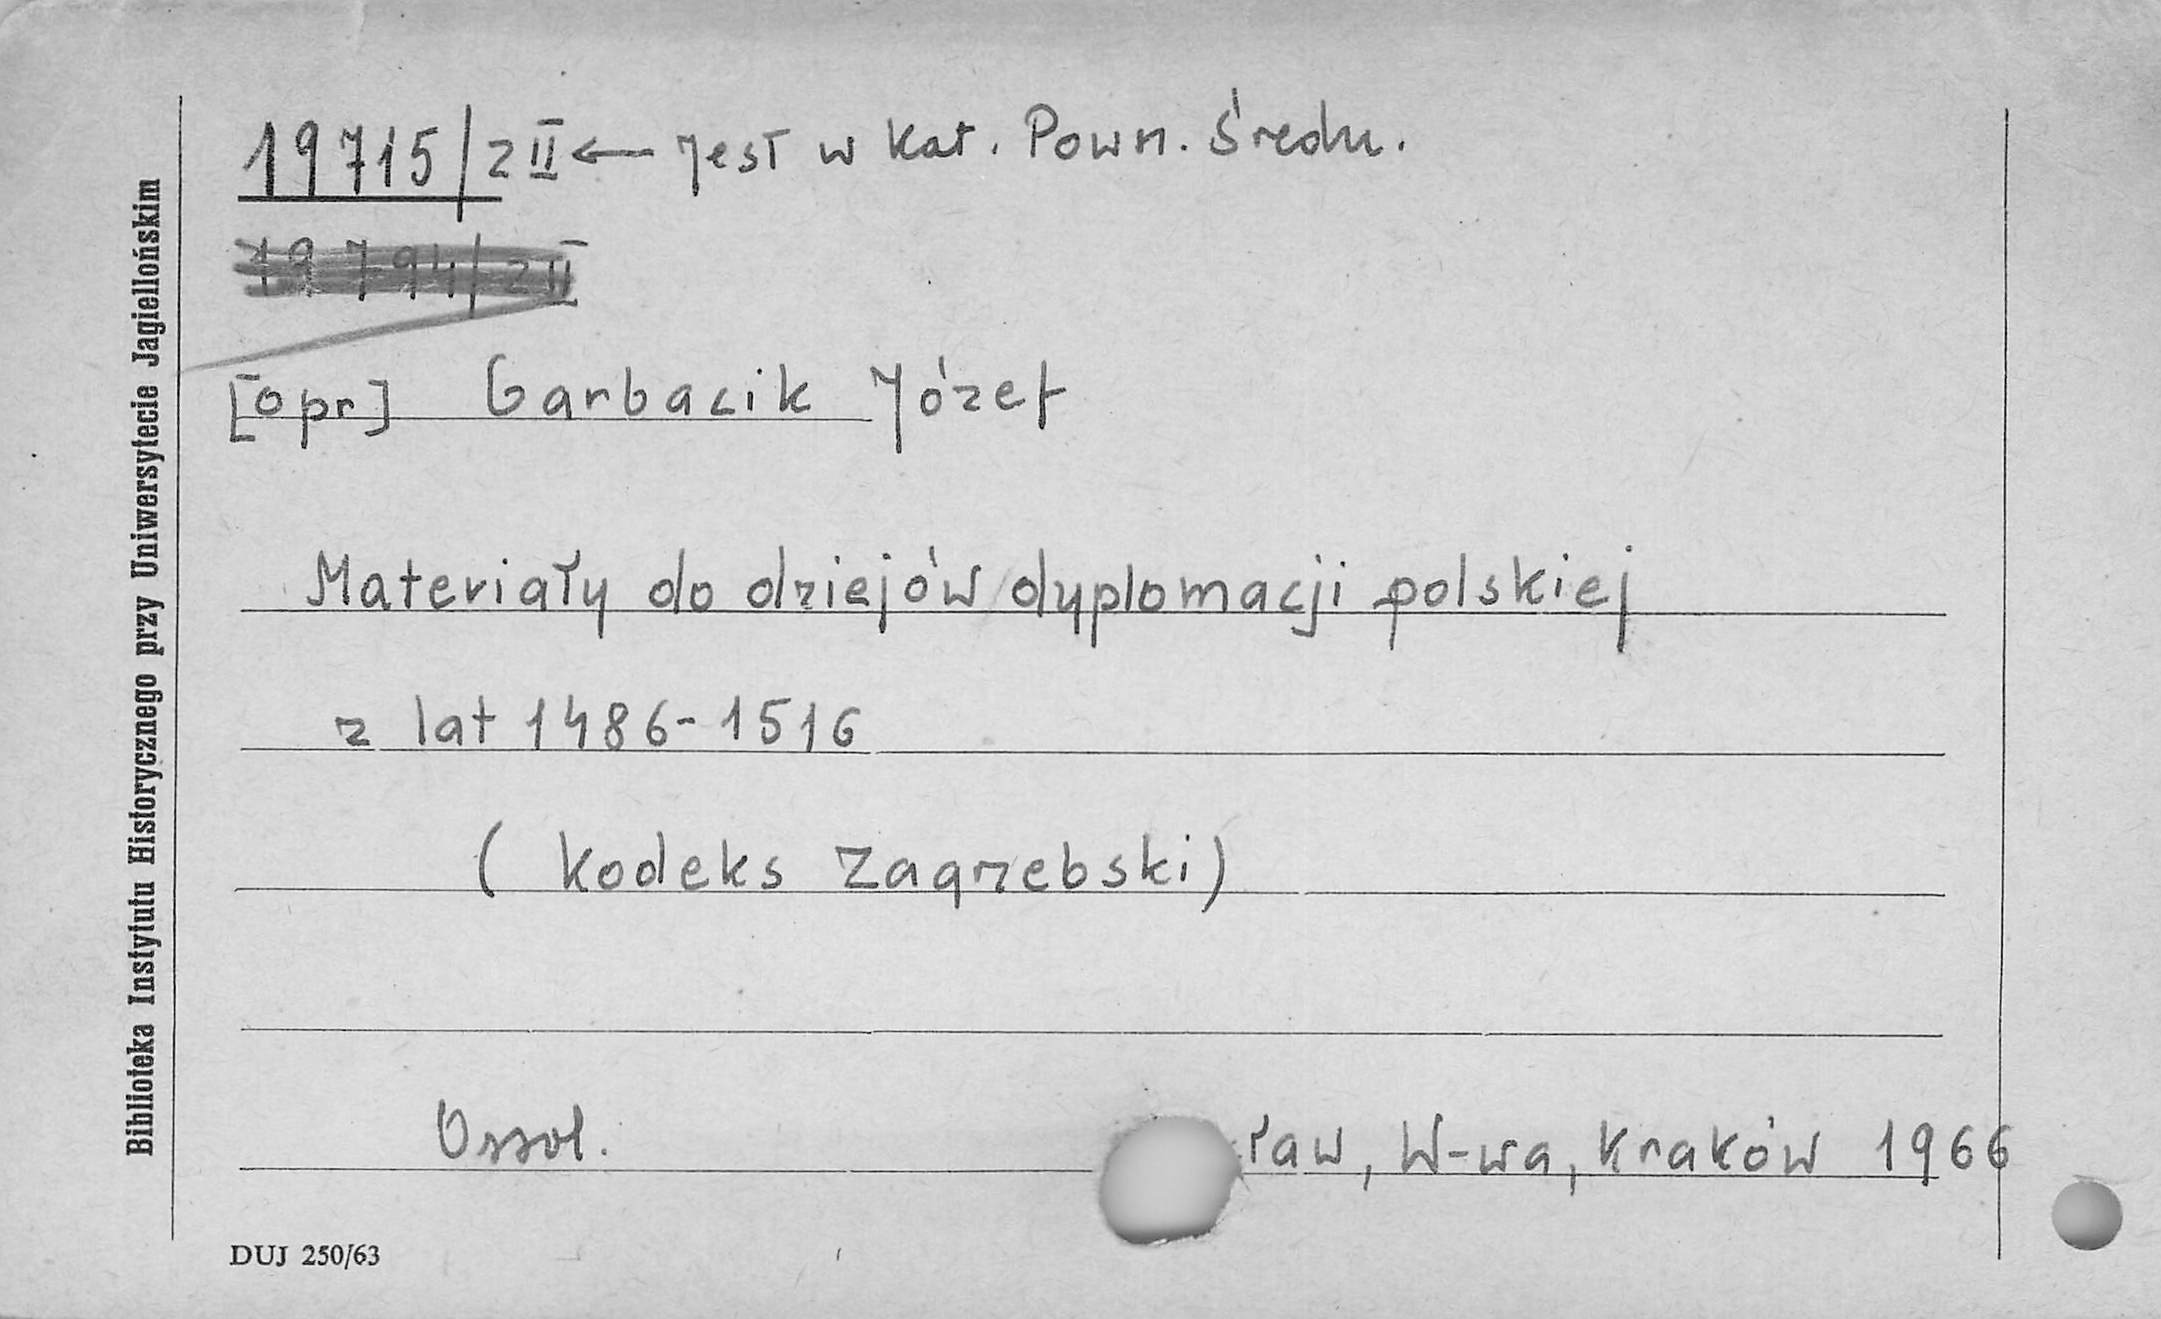 19715/z II ← Jest w kat. Pown. Średn.
19794/z II
[opr] Garbacik Józef
Materiały do dziejów dyplomacji polskiej
z lat 1486-1516
(kodeks Zagrzebski)
Ossol. ław, W-wa, Kraków 1966
DUJ 250/63
Biblioteka Instytutu Historycznego przy Uniwersytecie Jagiellońskim